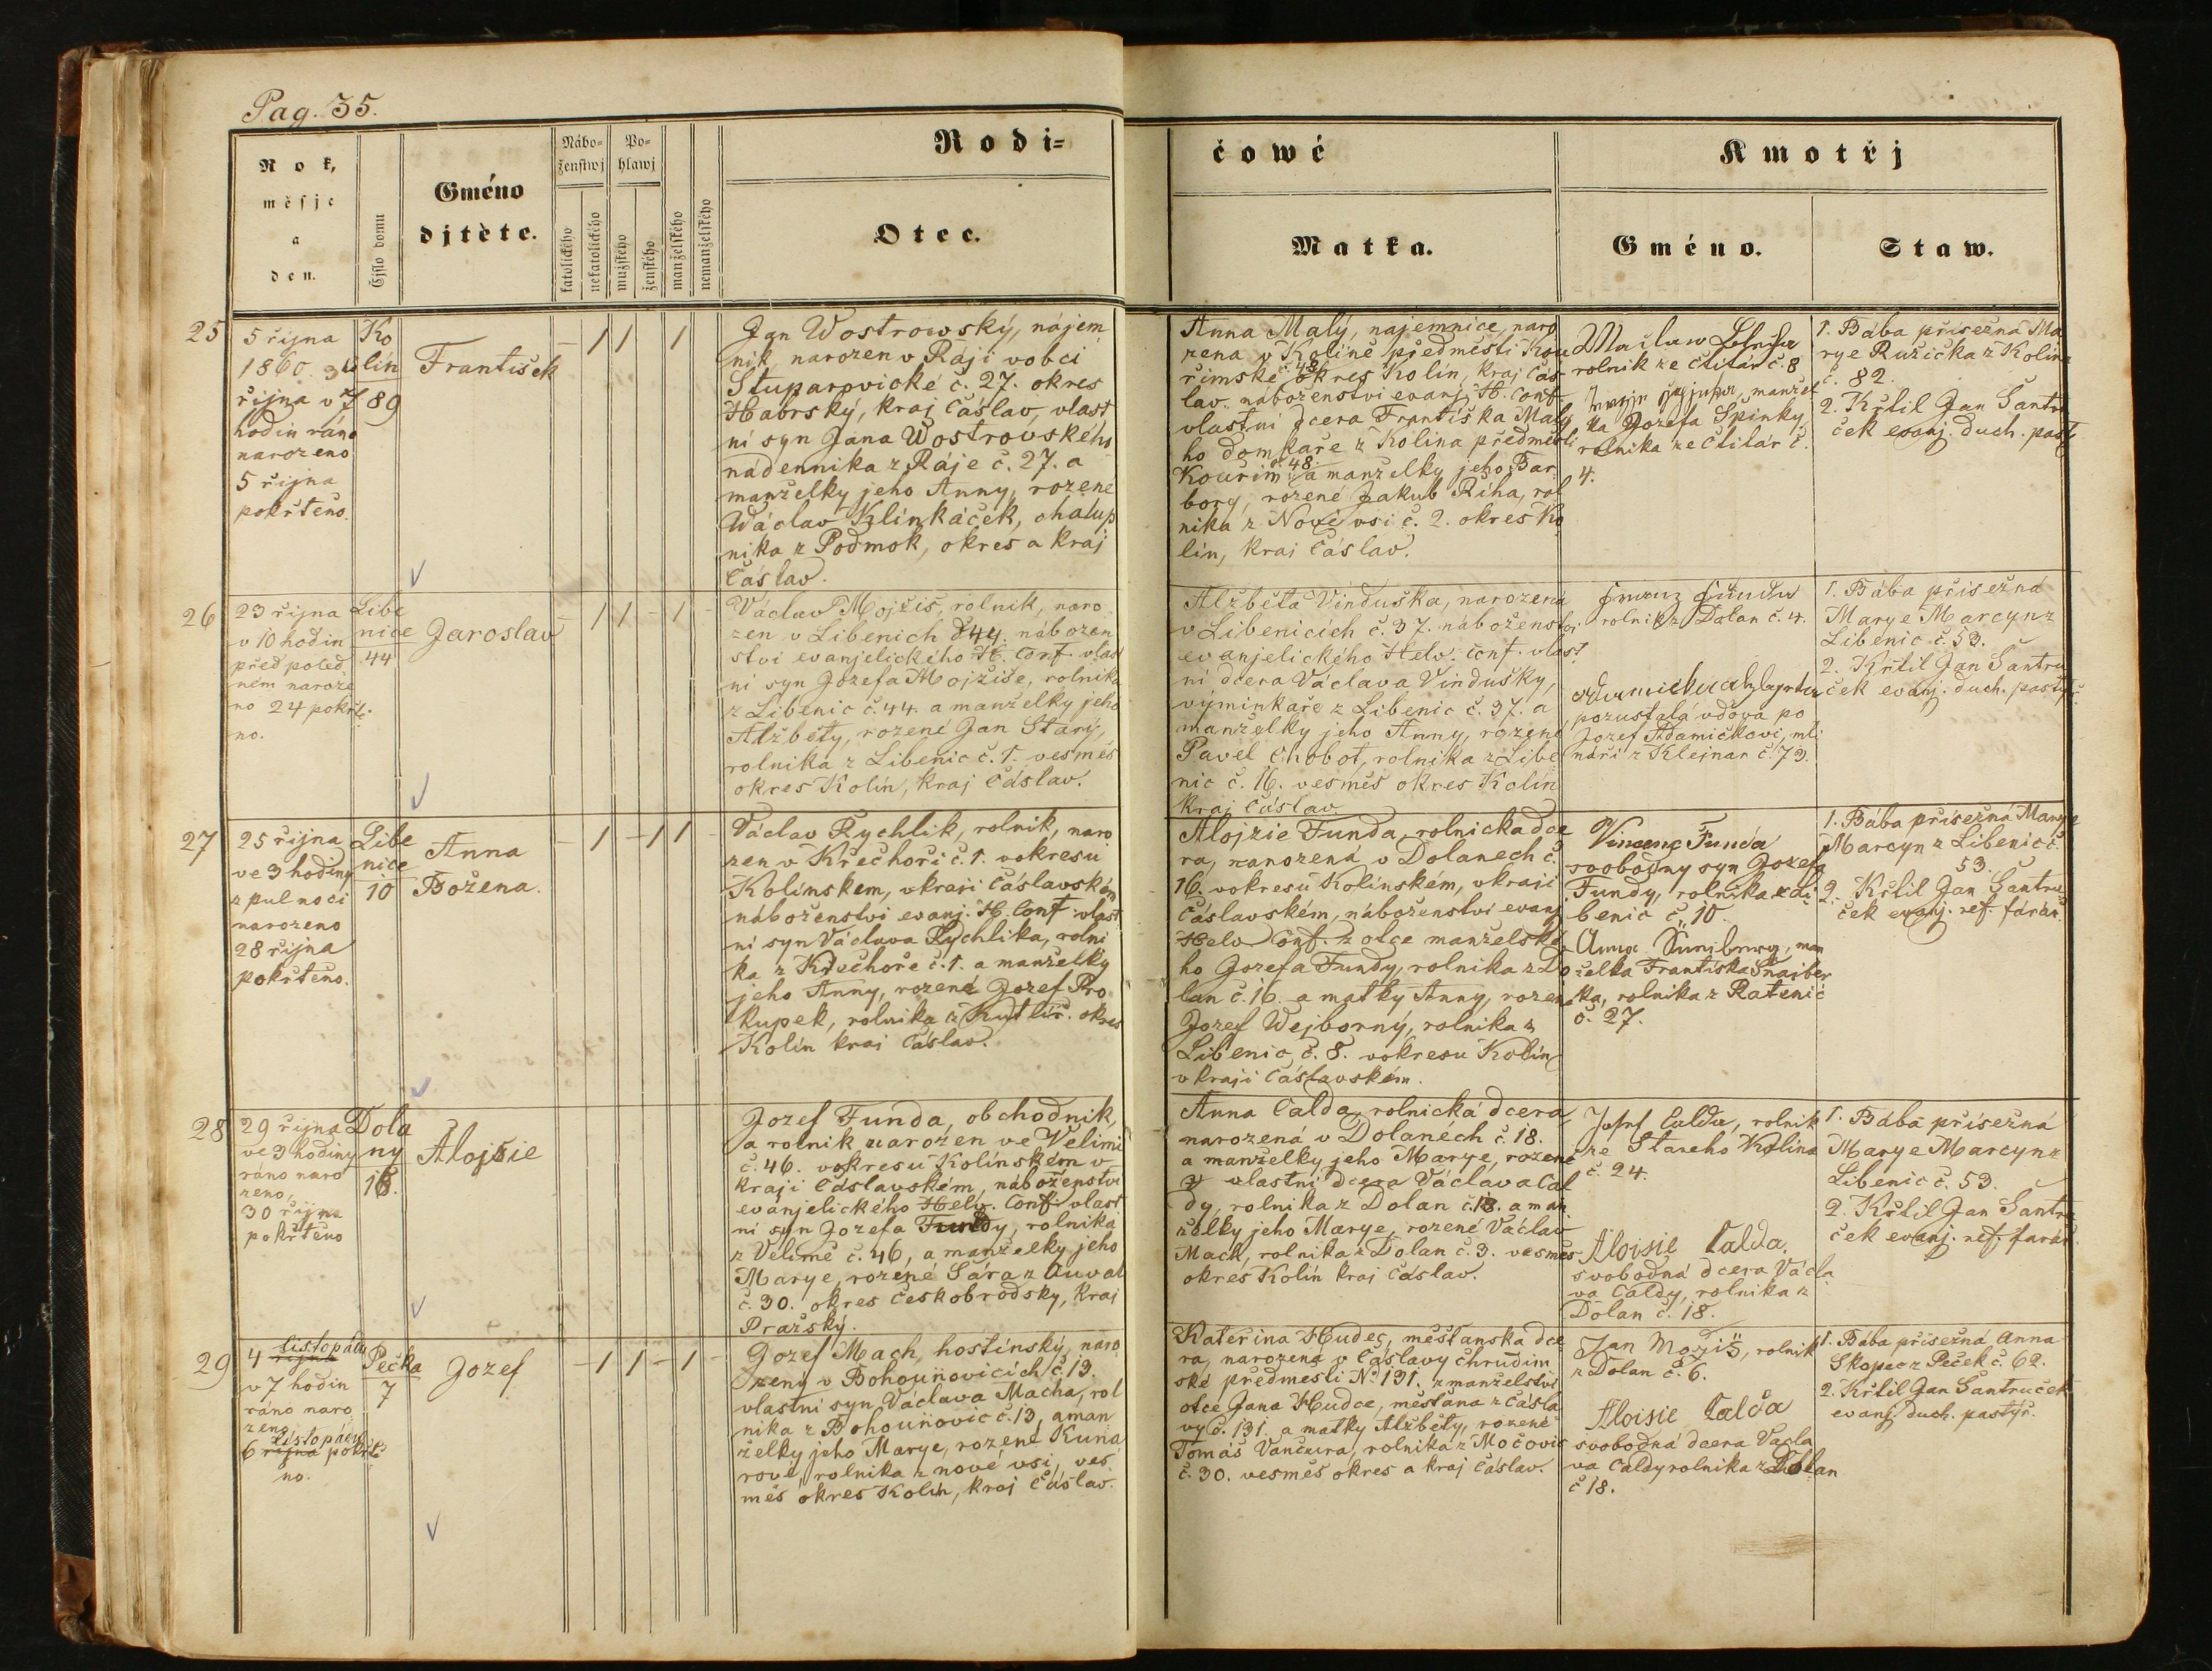 Pag. 35.
Rok,
měsje
a
den.
Čjslo domu
Gméno
djtěte.
Nábo=
ženstwj
katolického
nekatolického
Po=
hlawj
mužského
ženského
manželského
nemanželského
Rodi=
Otec.
čowé
Matka.
Kmotřj
Gméno.
Staw.
25
5 října
1860.
října v 7
hodin ráno
narozeno
5 října
pokřteno.
Ko
lín
89
František
Jan Wostrowský, nájem
nik narozen v Ráji vobci
Stuparovické č. 27. okres
Habrský, kraj Čáslav, vlast
ní syn Jána Wostrovského
nadennika z Ráje č. 27. a
manželky jeho Anny, rozené
Wáclav Klinkáček, chalup
nika z Podmok, okres a kraj
Čáslav.
Anna Malý, najemnice, naro
zena v Kolíně předměstí Kou
řimské č. 48 okres Kolín, kraj Čás
lav. náboženství evanj. H. Conf.
vlastní dcera Františka Malý
ho domkaře z Kolína předměstí
Kouřim: č. 48. a manželky jeho Bar
bory, rozené Jakub Říha, rol
nika z Nové vsi č. 2. okres Ko
lín, kraj Čáslav.
rolnik ze Ctitár č. 8
manžel
ka Jozefa Spinky,
rolnika ze Ctitár č.
4.
1. Bába přísežná Ma
rye Ružička z Kolína
č. 82.
2. Křtil Jan Šantru
ček evanj. duch. pastý
26
23 října
v 10 hodin
před poled
ném naroze
no 24 pokřte
no.
Libe
nice
44
Jaroslav
Václav Mojžiš, rolnik, naro
zen v Libenich č 44. nábožen
ství evanjelického H. Conf. vlast
ní syn Jozefa Mojžiše, rolnika
z Libenic č. 44. a manželky jeho
Alžběty, rozené Jan Starý,
rolnika z Libenic č. 1. vesměs
okres Kolín, kraj Čáslav.
Alžběta Vinduška, narozena
v Libenicích č. 37. náboženství
evanjelického Helv. Conf. vlast
ní dcera Václava Vindušky,
výminkaře z Libenic č. 37. a
manželky jeho Anny, rozené
Pavel Chobot, rolnika z Libe
nic č. 16. vesměs okres Kolín
kraj Čáslav.
rolnik z Dolan č. 4.
pozustalá vdova po
Jozef Adamičkovi, ml
náři z Klejnar č. 79.
1. Bába přísežná
Marye Marcyn z
Libenic č. 53.
2. Křtil Jan Šantru
ček evanj. duch. pastýř
27
25 října
ve 3 hodiny
z pul noci
narozeno
28 října
pokřteno.
Libe
nice
10
Anna
Božena.
Václav Rychlik, rolnik, naro
zen v Křečhoři č. 1. vokresu
Kolínskem, vkraji Čáslavském
náboženství evanj. H. Conf. vlast
ní syn Václava Rychlika, rolni
ka z Křečhoře č. 1. a manželky
jeho Anny, rozené Jozef Pro
kupek, rolnika z Kutlíř. okres
Kolín kraj Čáslav.
Alojzie Funda, rolnicka dce
ra, narozená v Dolanech č.
16. vokresu Kolínském, vkraji
Čáslavském, náboženství evanj.
Helv Conf. z otce manželské
ho Jozefa Fundy, rolnika z Do
lan č. 16. a matky Anny, rozené
Jozef Wejborný, rolnika z
Libenic, č. 8. vokresu Kolín
v kraji Čáslavském.
Vincenc Funda
svobodny syn Jozefa
Fundy, rolnika z Li
benic č. 10.
Anna man
želka Františka Šnajber
ka, rolnika z Ratenic
č. 27.
1. Bába přísežná Marye
Marcyn z Libenic č.
53.
2. Křtil Jan Šantru
ček evanj. ref. farář.
28
29 října
ve 3 hodiny
ráno naro
zeno,
30 října
pokřteno
Dola
ny
18.
Alojsie
Jozef Funda, obchodník,
a rolnik narozen ve Velimi
č. 46. vokresu Kolínském v
kraji Čáslavském, náboženství
evanjelického Helv. Conf. vlast
ní syn Jozefa Fundy, rolnika
z Velimě č. 46, a manželky jeho
Marye, rozené Šára z Auval
č. 30. okres Českobrodsky, kraj
Pražský.
Anna Calda, rolnická dcera,
narozená v Dolanéch č. 18.
a manželky jeho Marye, rozené
vlastní dcera Václava Cal
dy, rolnika z Dolan č. 18. a man
želky jeho Marye, rozené Václav
Mach, rolnika z Dolan č. 3. vesměs
okres Kolín kraj Čáslav.
Josef Calda, rolnik
ze Stareho Kolína
č. 24.
Aloisie Calda.
svobodná dcera Václa
va Caldy, rolnika z
Dolan č. 18.
1. Bába přísežná
Marye Marcyn z
Libenic č. 53.
2. Křtil Jan Šantru
ček evanj. ref. farář.
29
listopadu
4 října
v 7 hodin
ráno naro
zeno
listopadu
6 října pokřte
no.
Pečka
7
Jozef
Jozef Mach, hostinský, naro
zeny v Bohouňovicích č. 13.
vlastní syn Václava Macha, rol
nika z Bohouňovic č. 13, a man
želky jeho Marye, rozené Kuna
rové, rolnika z nové vsi, ves
měs okres Kolín, kraj Čáslav.
Kateřina Hudec, měšťanska dce
ra, narozená v Čáslavy Chrudim
ské předmesti No 131. z manželství
otce Jana Hudce, měšťana z Čásla
vy č. 131. a matky Alžběty, rozené
Tomáš Vančura, rolnika z Močovic
č. 30. vesměs okres a kraj Čáslav.
Jan Mogiš, rolnik
z Dolan č. 6.
Aloisie Calda
svobodná dcera Václa
va Caldy rolnika z Dolan
č 18.
1. Bába přísežná Anna
Skopec z Peček č. 62.
2. Křtil Jan Šantruček
evanj. duch. pastýř.